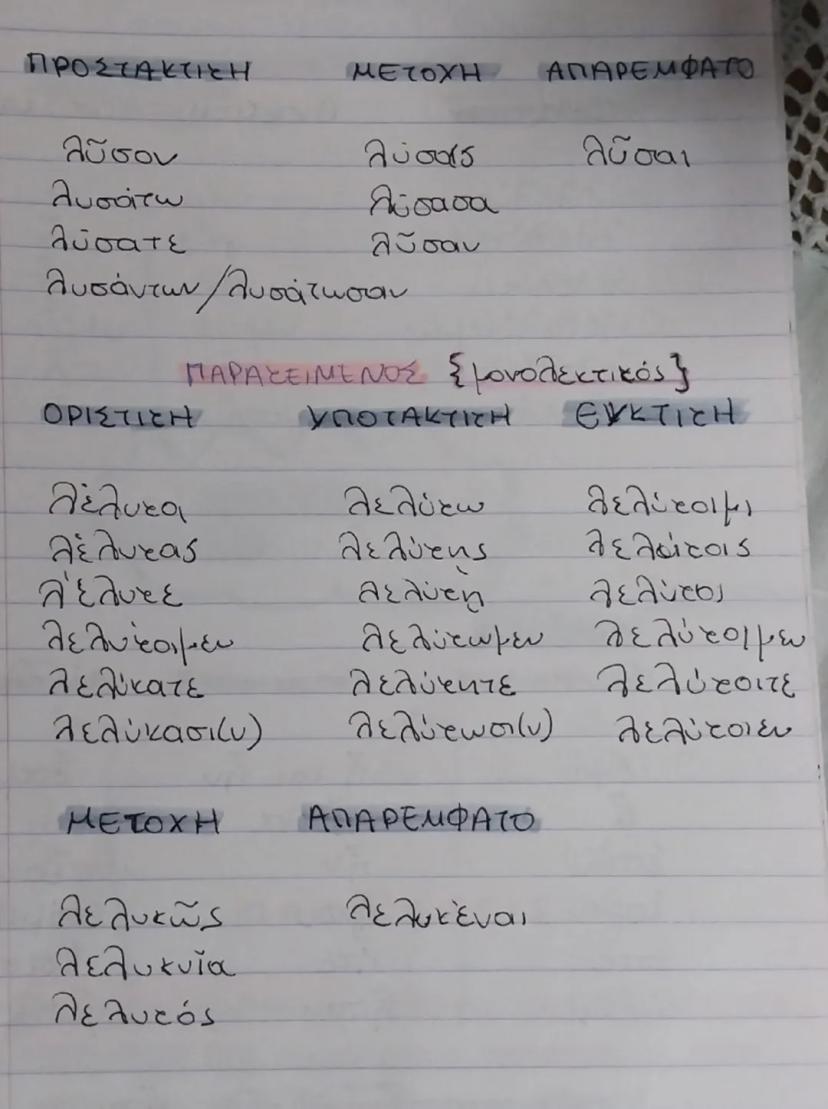 ΠΡΟΣΤΑΚΤΙΚΗ ΜΕΤΟΧΗ ΑΠΑΡΕΜΦΑΤΟ
λῦσον λύσας λῦσαι
λυσάτω λύσασα
λύσατε λῦσαν
λυσάντων/λυσάτωσαν
ΠΑΡΑΚΕΙΜΕΝΟΣ {μονολεκτικός}
ΟΡΙΣΤΙΚΗ ΥΠΟΤΑΚΤΙΚΗ ΕΥΚΤΙΚΗ
λέλυκα λελύκω λελύκοιμι
λέλυκας λελύκῃς λελύκοις
λέλυκε λελύκῃ λελύκοι
λελύκοιμεν λελύκωμεν λελύκοιμεν
λελύκατε λελύκητε λελύκοιτε
λελύκασι(ν) λελύκωσι(ν) λελύκοιεν
ΜΕΤΟΧΗ ΑΠΑΡΕΜΦΑΤΟ
λελυκῶς λελυκέναι
λελυκυῖα
λελυκός